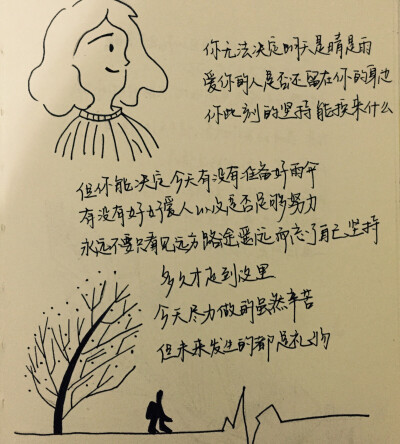 你无法决定明天是晴是雨
爱你的人是否还留在你的身边
你此刻的坚持能换来什么
但你能决定今天有没有准备好雨伞
有没有好好爱人以及是否足够努力
永远不要只看见远方路途遥远而忘了自己坚持
多久才走到这里
今天尽力做的虽然辛苦
但未来发生的都是礼物